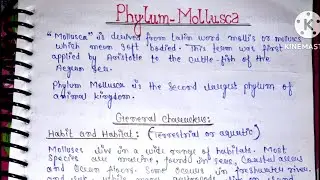 Phylum-Mollusca
"Mollusca" is derived from latin word mollis or molluscs
which mean soft bodied. This term was first
applied by Aristotle to the cuttle-fish of the
Aegean Sea.
Phylum Mollusca is the second largest phylum of
animal kingdom.
General Characters:
Habit and Habitat: (Terrestrial or aquatic)
Molluscs live in a wide range of habitats. Most
species are marine, found in seas, coastal areas
and ocean floor. Some occurs in freshwater rivers
KINEMASTER